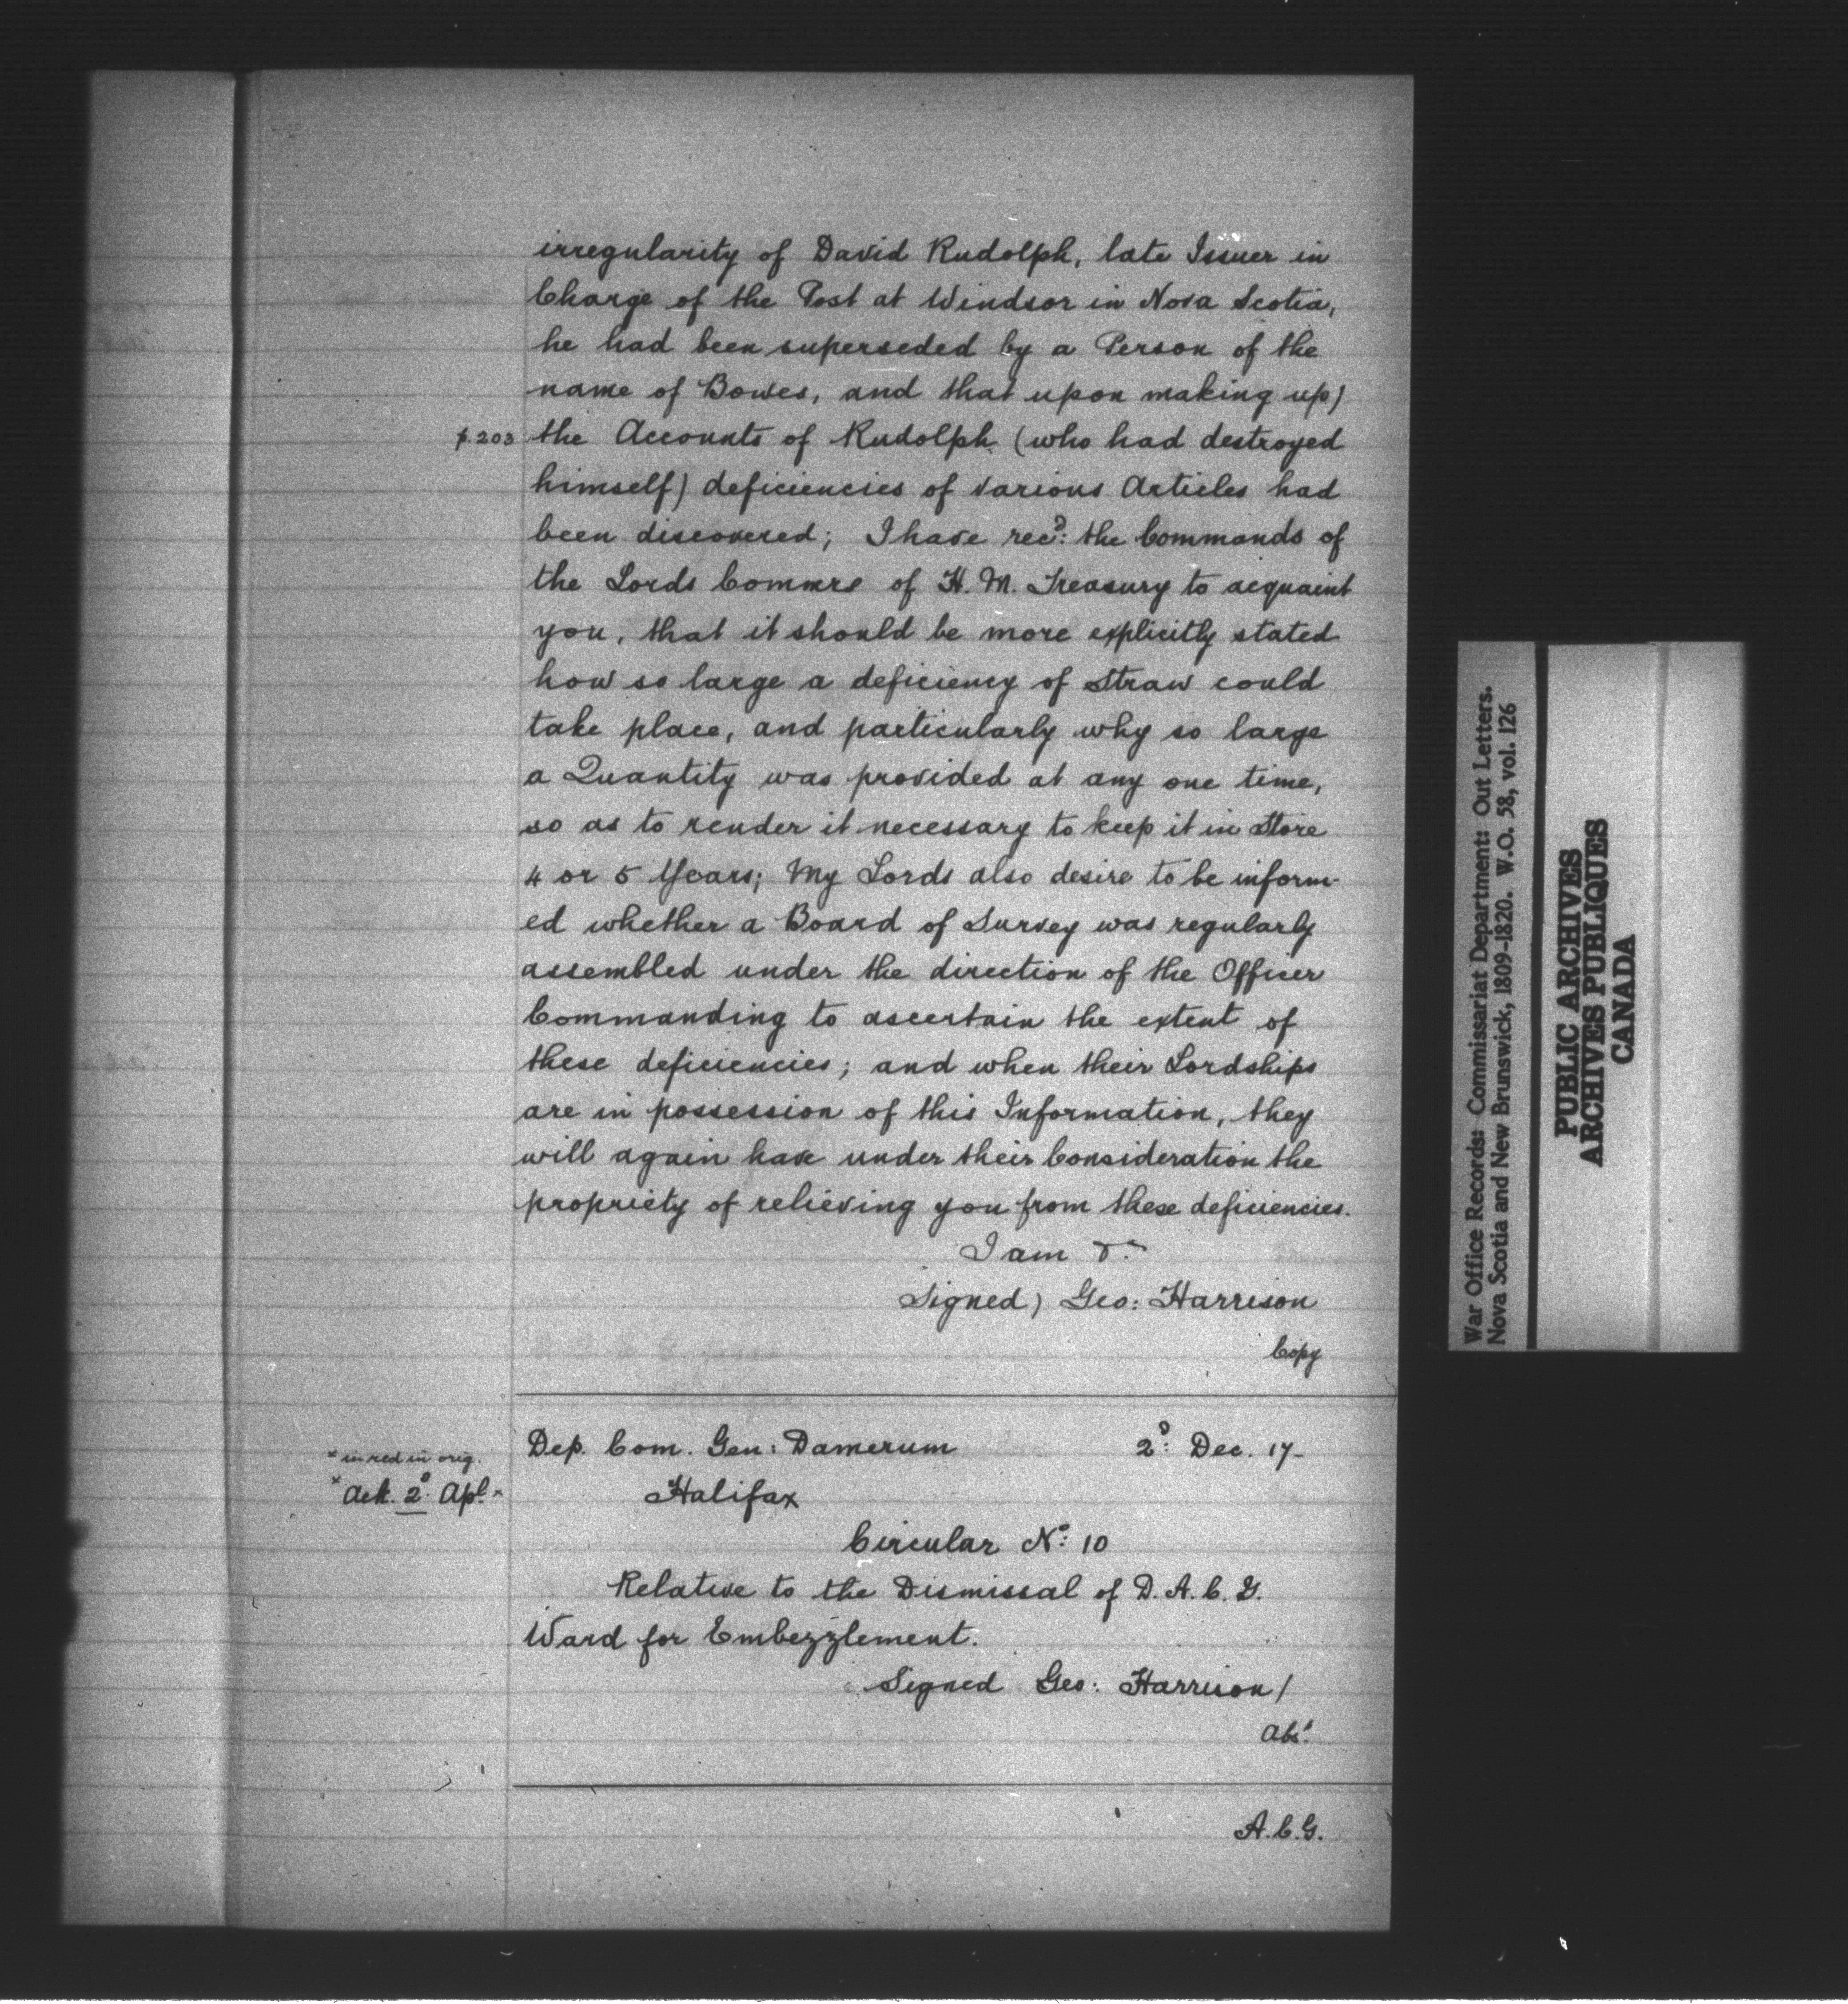 irregularity of David Rudolph, late Issuer in
Charge of the Post at Windsor in Nova Scotia,
he had been superseded by a Person of the
name of Bowes, and that upon making up)
p.203 the Accounts of Rudolph (who had destroyed
himself) deficiencies of various Articles had
been discovered; I have recd: the Commands of
the Lords Commrs of H. M. Treasury to acquaint
you, that it should be more explicitly stated
how so large a deficiency of Straw could
take place, and particularly why so large
a Quantity was provided at any one time,
so as to render it necessary to keep it in Store
4 or 5 Years; My Lords also desire to be inform-
ed whether a Board of Survey was regularly
assembled under the direction of the Officer
Commanding to ascertain the extent of
these deficiencies; and when their Lordships
are in possession of this Information, they
will again have under their Consideration the
propriety of relieving you from these deficiencies.
I am &c
Signed) Geo: Harrison
Copy
Dep. Com. Gen: Damerum 2d: Dec. 17-
x in red in orig.
x Ack. 2d Apl. x
Halifax
Circular No: 10
Relative to the Dismissal of D. A. C. G.
Ward for Embezzlement.
Signed Geo: Harrison/
Abst
A.C.G.
War Office Records: Commissariat Department: Out Letters.
Nova Scotia and New Brunswick, 1809-1820. W.O. 58, vol. 126
PUBLIC ARCHIVES
ARCHIVES PUBLIQUES
CANADA